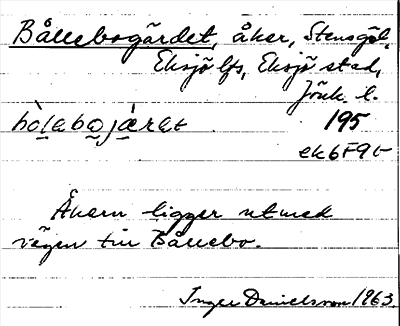 Bållebogärdet, åker, Stensgöl,
Eksjö lfs, Eksjö stad,
Jönk. l.
bòlebojæ̀ret. 195
ek6F9b
Åkern ligger utmed
vägen till Bållebo.
Inger Danielsson 1963